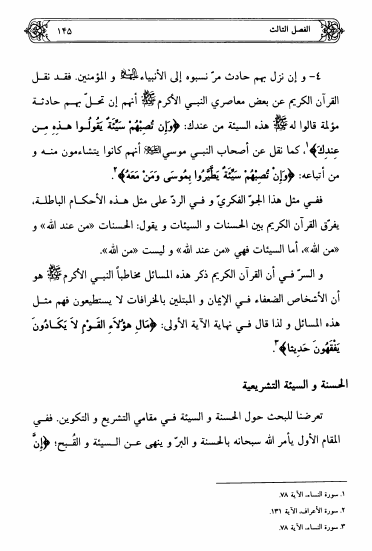 الفصل الثالث
١٤٥
٤- و إن نزل بهم حادث مرّ نسبوه إلى الأنبياء و المؤمنين. فقد نقل
القرآن الكريم عن بعض معاصري النبي الأكرم ﷺ أنهم إن تحلّ بهم حادثة
مؤلمة قالوا له ﷺ هذه السيئة من عندك: ﴿وَإِن تُصِبْهُمْ سَيِّئَةٌ يَقُولُوا هَذِهِ مِن
عِندِكَ﴾١، كما نقل عن أصحاب النبي موسى أنهم كانوا يتشاءمون منه و
من أتباعه: ﴿وَإِن تُصِبْهُمْ سَيِّئَةٌ يَطَّيَّرُوا بِمُوسَى وَمَنْ مَعَهُ﴾٢.
ففي مثل هذا الجوّ الفكريّ و في الردّ على مثل هذه الأحكام الباطلة،
يفرّق القرآن الكريم بين الحسنات و السيئات و يقول: الحسنات «من عند الله» و
«من الله»، أما السيئات فهي «من عند الله» و ليست «من الله».
و السرّ في أن القرآن الكريم ذكر هذه المسائل مخاطباً النبي الأكرم ﷺ هو
أن الأشخاص الضعفاء في الإيمان و المبتلين بالخرافات لا يستطيعون فهم مثل
هذه المسائل و لذا قال في نهاية الآية الأولى: ﴿مَالِ هؤُلَاءِ الْقَوْمِ لاَ يَكَادُونَ
يَفْقَهُونَ حَدِيثا﴾٣.
الحسنة و السيئة التشريعية
تعرضنا للبحث حول الحسنة و السيئة في مقامي التشريع و التكوين. ففي
المقام الأول يأمر الله سبحانه بالحسنة و البرّ و ينهى عن السيئة و القبح: ﴿إِنَّ
١. سورة النساء، الآية ٧٨.
٢. سورة الأعراف، الآية ١٣١.
٣. سورة النساء، الآية ٧٨.